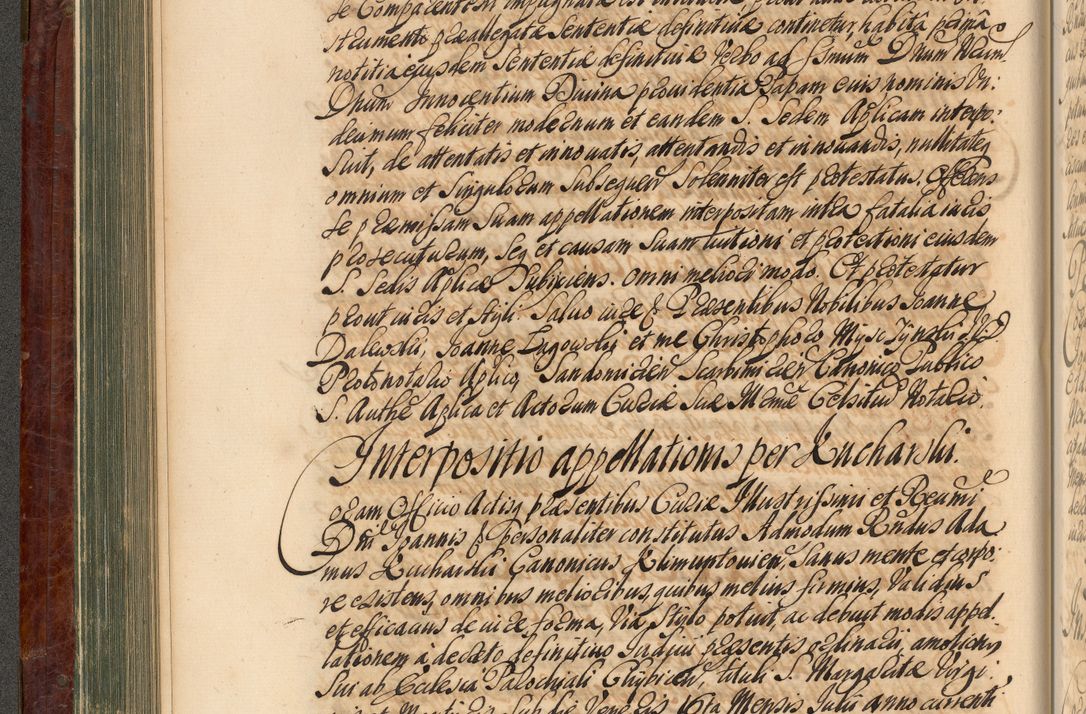 strumento præallegatæ Sententiæ definitivæ continetur, habita prima
notitia ejusdem Sententiæ definitivæ Verbo ad Ssmum Dnum Nrum
Dnum Innocentium Divina providentia Papam eius nominis Un:
decimum feliciter modernum et eandem S. Sedem Aplicam interpo:
suit, de attentatis et innovatis, attentandis et innovandis, nullitateq
omnium et Singulorum Subsequen Solenniter est protestatus. Offerens
se præmissam Suam appellationem interpositam intra fatalia iuris
prosecuturum, Seq et causam Suam tuitioni et protectioni eiusdem
S. Sedis Aplicæ Subiiciens. omni meliori modo. Et protestatur
prout iuris et Styli. Salvo iure &. Præsentibus Nobilibus Joanne
Dalewski, Joanne Lugowski et me Christophoro Myscczynski
Protonotario Aplico, Sandomirien Scarbimirien Canonico Publico
S. Authe Aplica et Actorum Curiæ Suæ Celsitud Notario.
Interpositio appellationis per Kucharski.
oram Officio Actisq præsentibus Curiæ Illustrissimi et Reverendmi
Dni Joannis & Personaliter constitutus Admodum Rndus Ada
mus Kucharski Canonicus Klimuntovien, Sanus mente et corpo
re existens, omnibus melioribus quibus melius firmius, Validius
et efficacius de iure forma, Via Stylo potuit, ac debuit modis appel
lationem a decreto definitivo Iudicii præsentis ordinarii, amotionis
Sui ab Ecclesia Parochiali Chybicen, tituli S. Margaritæ Virgi
nis et Martiris Sub die Veneris 16ta Mensis Julii anno currenti